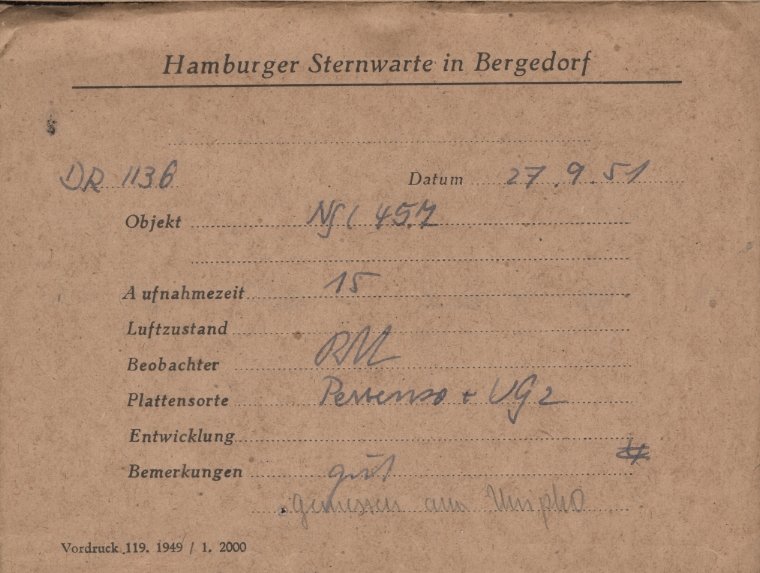 Hamburger Sternwarte in Bergedorf
DR 1136 Datum 27.9.51
Objekt NGC 457
Aufnahmezeit 15
Luftzustand
Beobachter
Plattensorte Persenso + UG2
Entwicklung
Bemerkungen gut
gemessen am
Vordruck 119. 1949 / 1. 2000